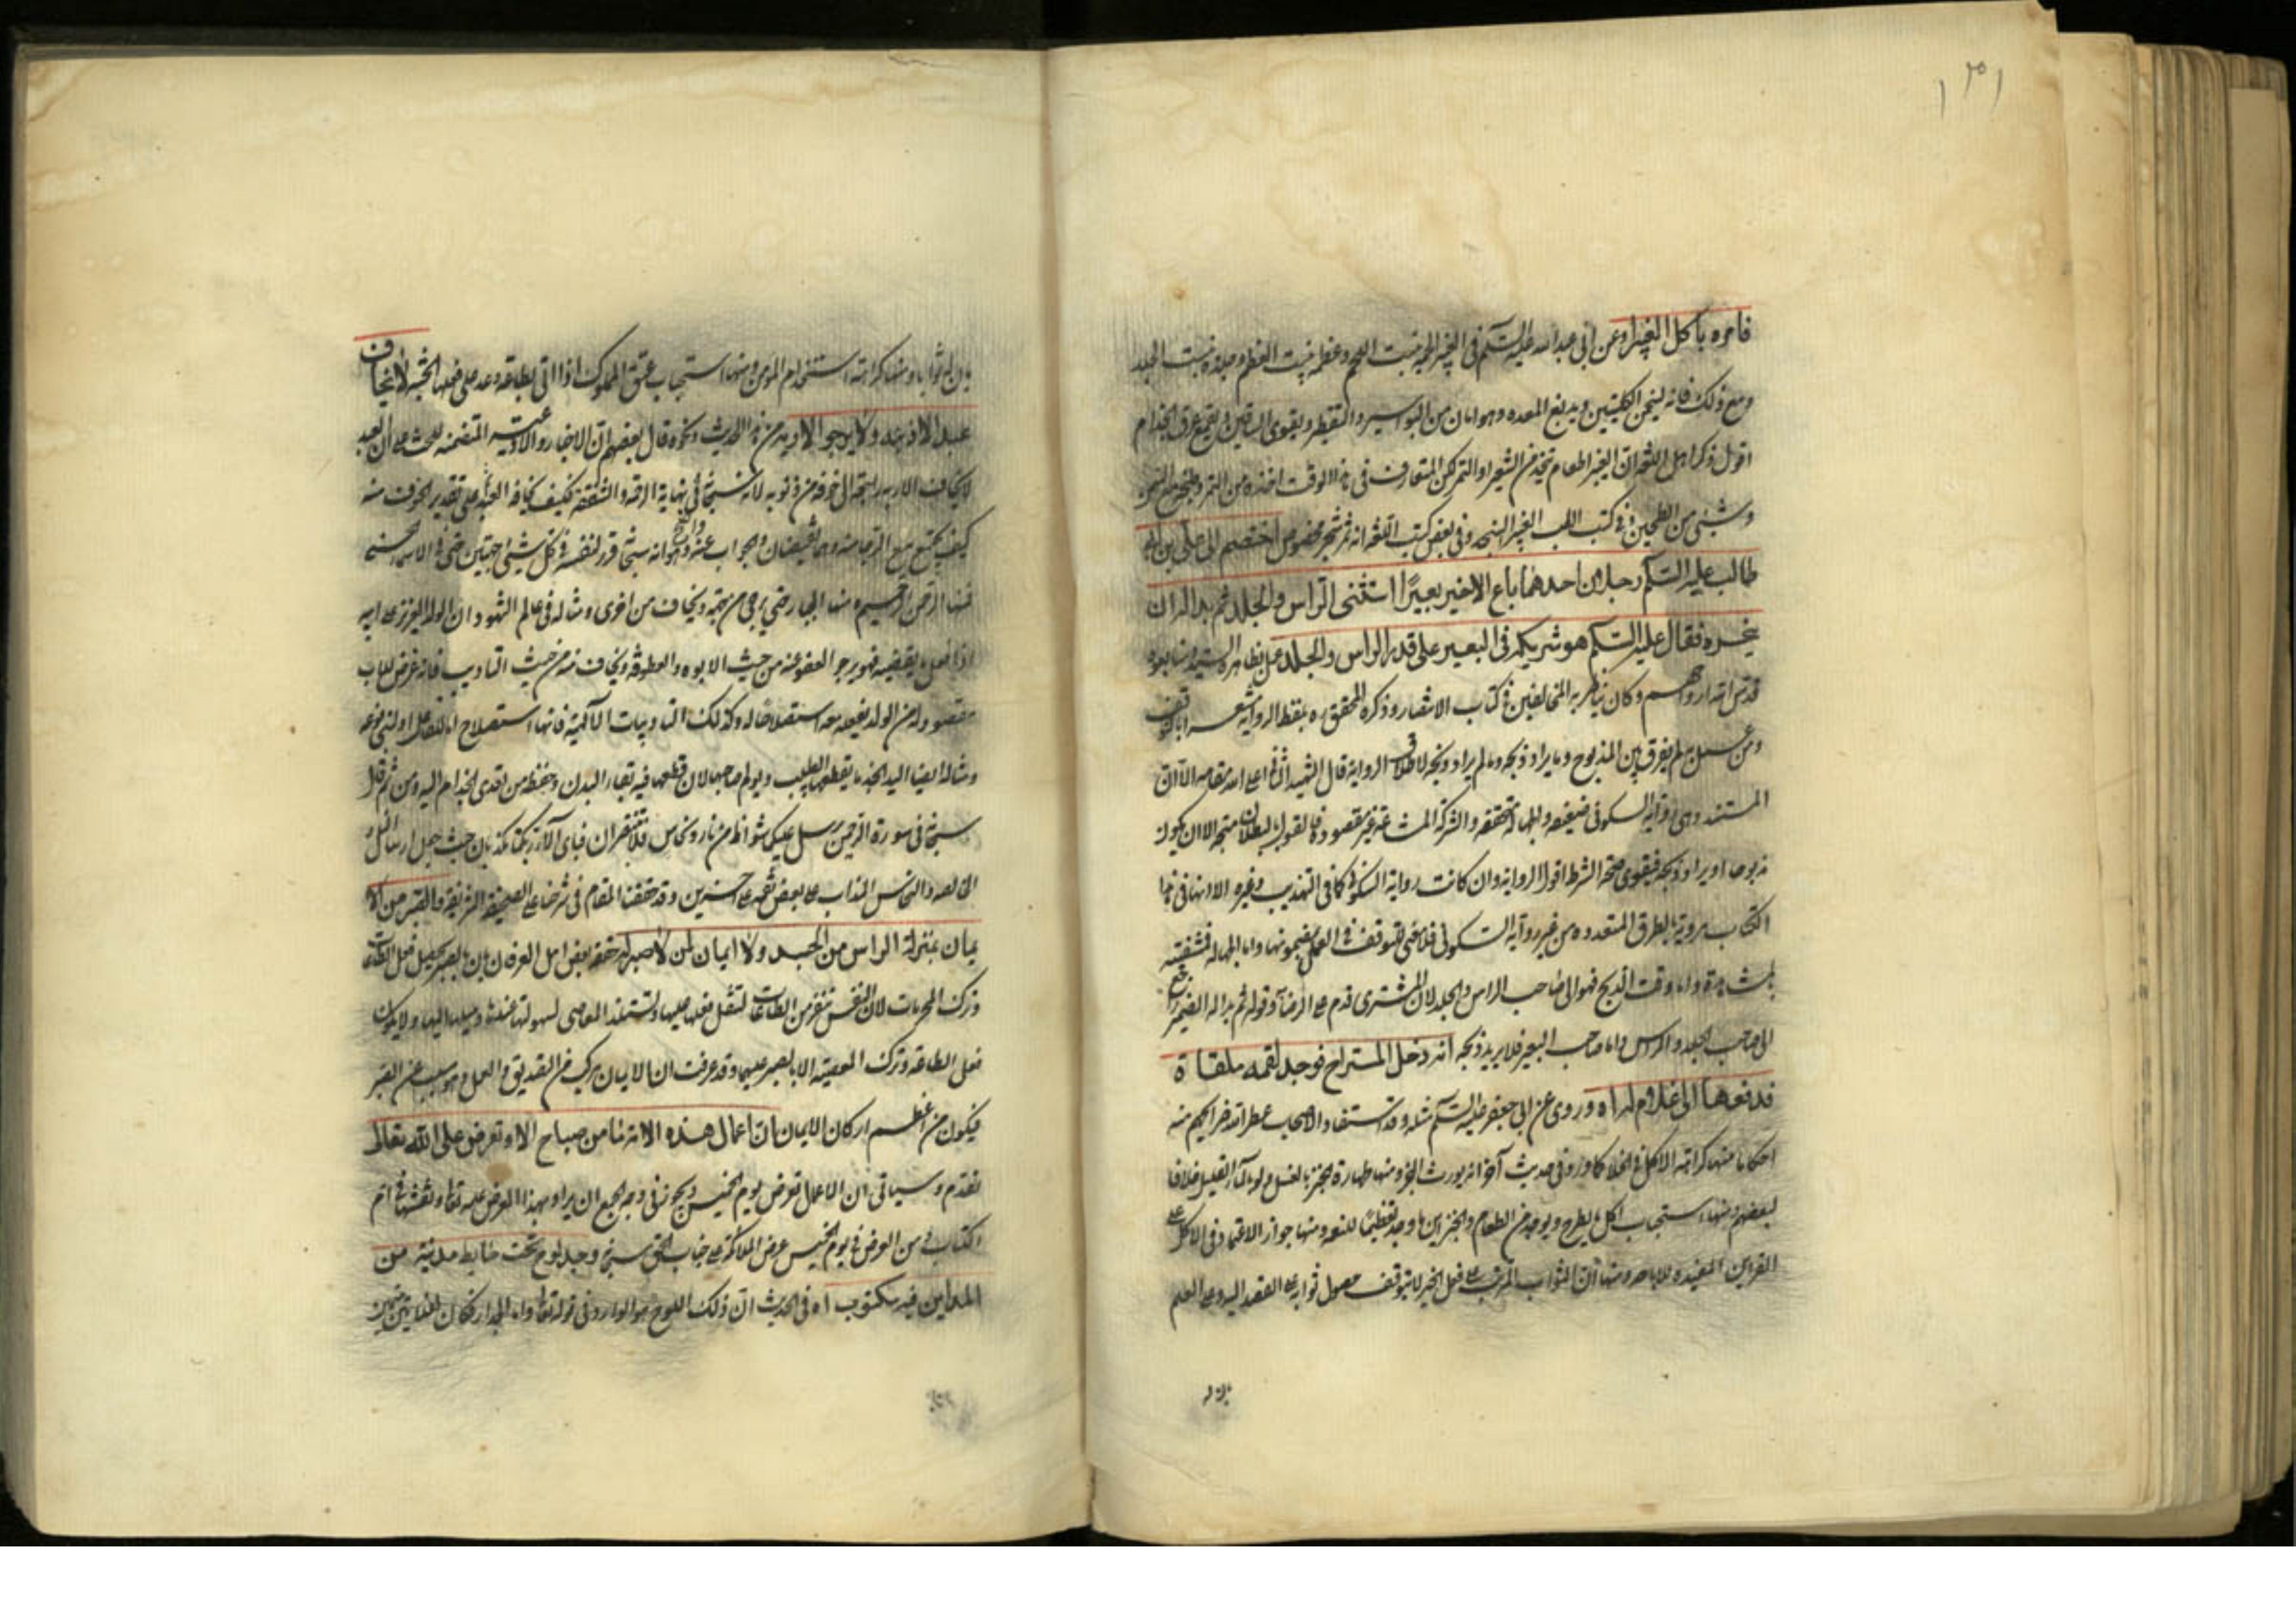 ١٣١
فامره باكل الغبيرا وعن ابي عبدالله عليه السلم في الغبيرا لحمه ينبت اللحم وعظمه ينبت العظم وجلده ينبت الجلد
ومع ذلك فانه يسخن الكليتين ويدبغ المعده وهو امان من البواسير والتقطير ويقوى الساقين ويقمع عرق الجذام
اقول ذكر اهل اللغه ان الغبيرا طعام يتخذ من الشعير او التمر لكن المتعارف في هذا الوقت اخذه من التمر
وشيئ من الطحين وفي كتب الطب الغبيرا السنجد وفي بعض كتب اللغه انه ثمر شجر مخصوص اختصم الى علي بن ابي
طالب عليه السلم رجلان احدهما باع الاخير بعيرًا استثنى الراس والجلد ثم بدا له ان
ينحره فقال عليه السلم هو شريكه في البعير على قدر الراس والجلد عمل بظاهره السيد وتابعوه
قدس الله ارواحهم وكان يناظر به المخالفين في كتاب الانتصار وذكره المحقق ره بلفظ الرواية
ومن عمل بها لم يفرق بين المذبوح وما يراد ذبحه وما لم يراد ذبحه لاطلاق الرواية قال الشهيد الثاني اعلى الله مقامه الا ان
المستند وهي رواية السكوني ضعيفه والجهالة متحققه والشركة المشاعة غير مقصودة فالقول بالبطلان متجه الا ان يكون
مذبوحا او يراد ذبحه فيقوى صحة الشرط اقول الرواية وان كانت رواية السكوني كما في التهذيب وغيره الا انها في هذا
الكتاب مروية بالطرق المتعدده من غير رواية السكوني فلا معنى للتوقف في العمل بمضمونها واما الجهالة فمنتفيه
بالمشاهدة واما وقت الذبح فهو الى صاحب الراس والجلد لان المشترى قدم على الرضا وقوله ثم بدا له الضمير راجع
الى صاحب الجلد والراس واما صاحب البعير فلا يريد ذبحه انه دخل المستراح فوجد لقمه ملقاة
فدفعها الى غلام له اه وروى عن ابي جعفر عليه السلم مثله وقد استفاد الاصحاب عطر الله ضرايحهم منه
احكاما منها كراهة الاكل في الخلا كما ورد في حديث آخر انه يورث البخر ومنها طهارة الخبز بالغسل ولو بالماء القليل خلافا
لبعضهم ومنها استحباب اكل ما يطرح ويوجد من الطعام والخبز اين ما وجد تعظيما للنعمه ومنها جواز الاعتماد في الاكل على
القراين المفيده للاباحه ومنها ان الثواب المرتب على فعل الخير لا يتوقف حصول ثوابه على القصد اليه وعلى العلم
بان له
بان له ثوابا ومنها كراهة استخدام المؤمن ومنها استحباب عتق المملوك اذا اتى بطاعة وعد على فعلها الجنة لا يخاف
عبد الا ذنبه ولا يرجو الا ربه من هذا الحديث ونحوه قال بعضهم ان الاخبار والادعية المتضمنه للحث على ان العبد
لا يخاف الا ربه راجعة الى خوفه من ذنوبه لانه سبحانه في نهاية الرأفه والشفقة فكيف يخافه العبد وعلى تقدير الخوف منه
كيف يجتمع مع الرجا منه وهما نقيضان والجواب عنه واضح وهو انه سبحانه قرر لنفسه في كل شيئ جهتين حتى في الاسماء الحسنى
فمنها الرحمن الرحيم ومنها الجبار حتى يرجى من جهة ويخاف من اخرى ومثاله في عالم الشهود ان الولد العزيز على ابيه
اذا فعل ما يغضبه فهو يرجو العفو عنه من حيث الابوه والعطوفة ويخاف منه من حيث التاديب فانه غرض للاب
مقصود له من الولد يفعله معه استصلاحا له وكذلك التاديبات الآلهية فانها استصلاح اما للفاعل او لبني نوعه
ومثاله ايضا اليد الجذما يقطعها الطبيب ويولم صاحبها لان قطعها فيه بقاء البدن وحفظه من تعدى الجذام اليه ومن ثم قال
سبحانه في سورة الرحمن يرسل عليكما شواظ من نار ونحاس فلا تنتصران فباى آلاء ربكما تكذبان حيث جعل ارسال النار
الخالصه والنحاس المذاب على بعض نعمه على آخرين وقد حققنا المقام في شرحنا على الصحيفة الشريفة والصبر من الا
يمان بمنزلة الراس من الجسد ولا ايمان لمن لا صبر له حققه بعض اهل العرفان بان بالصبر يحصل فعل الطاعات
وترك المحرمات لان النفس تنفر من الطاعات لثقل فعلها عليها وتستلذ المعاصى لسهولتها عندها وميلها اليها ولا يكون
فعل الطاعة وترك المعصية الا بالصبر عليهما وقد عرفت ان الايمان مركب من التصديق والعمل وهو مسبب عن الصبر
فيكون من اعظم اركان الايمان ان اعمال هذه الامة ما من صباح الا وتعرض على الله تعالى
تقدم وسياتى ان الاعمال تعرض يوم الخميس ويجوز في وجه الجمع ان يراد بهذا العرض عليه تعالى ونقشها في ام
الكتاب ومن العرض في يوم الخميس عرض الملائكة على جناب الحق سبحانه وجد لوح تحت حايط مدنية من
المداين فيه مكتوب اه في الحديث ان ذلك اللوح هو الوارد في قوله تعالى واما الجدار فكان لغلامين يتيمين